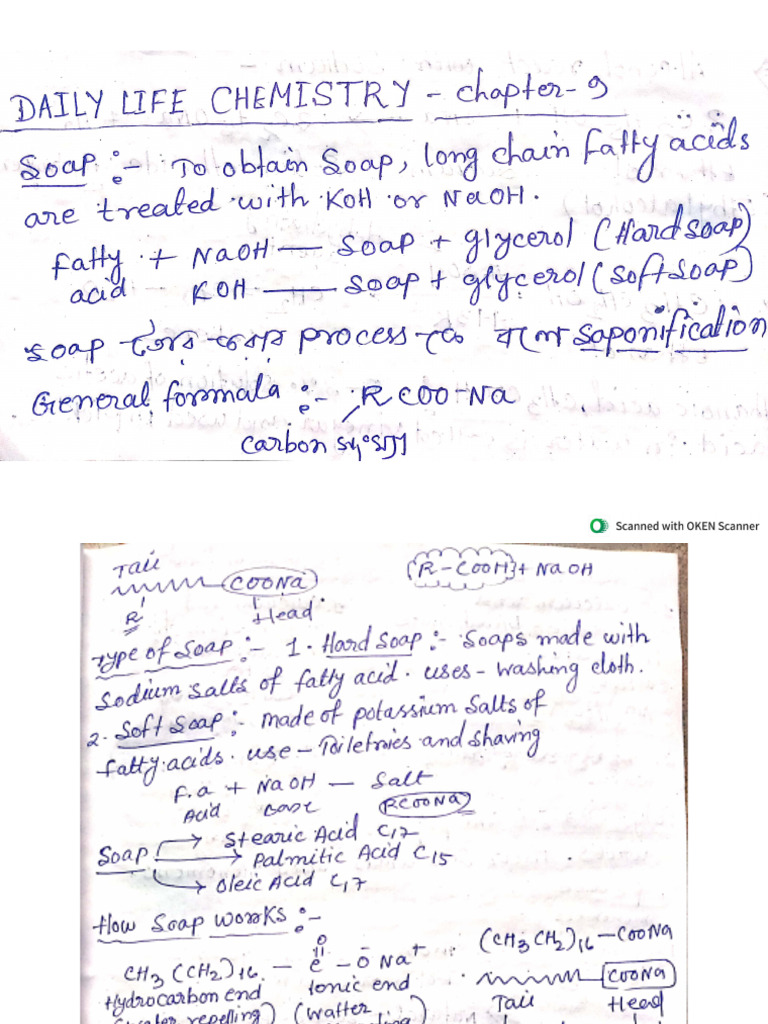 DAILY LIFE CHEMISTRY - chapter-9
Soap :- To obtain soap, long chain fatty acids
are treated with KOH or NaOH.
fatty + NaOH — Soap + glycerol (Hard soap)
acid KOH — Soap + glycerol (Soft soap)
soap process কে বলে saponification
General formala :- RCOO-Na
carbon সংখ্যা
Scanned with OKEN Scanner
Tail COONa (R-COOH) + NaOH
R Head
Type of soap :- 1. Hard soap :- Soaps made with
sodium salts of fatty acid. uses - washing cloth.
2. Soft soap :- made of potassium salts of
fatty acids. use - Toiletries and shaving
F.a + NaOH — Salt
Acid base RCOONa
Soap → Stearic Acid C17
→ Palmitic Acid C15
→ Oleic Acid C17
How soap works :-
O (CH3CH2)16-COONa
CH3(CH2)16 - C - O Na+ COONa
Hydrocarbon end Ionic end Tail Head
repelling) (watter